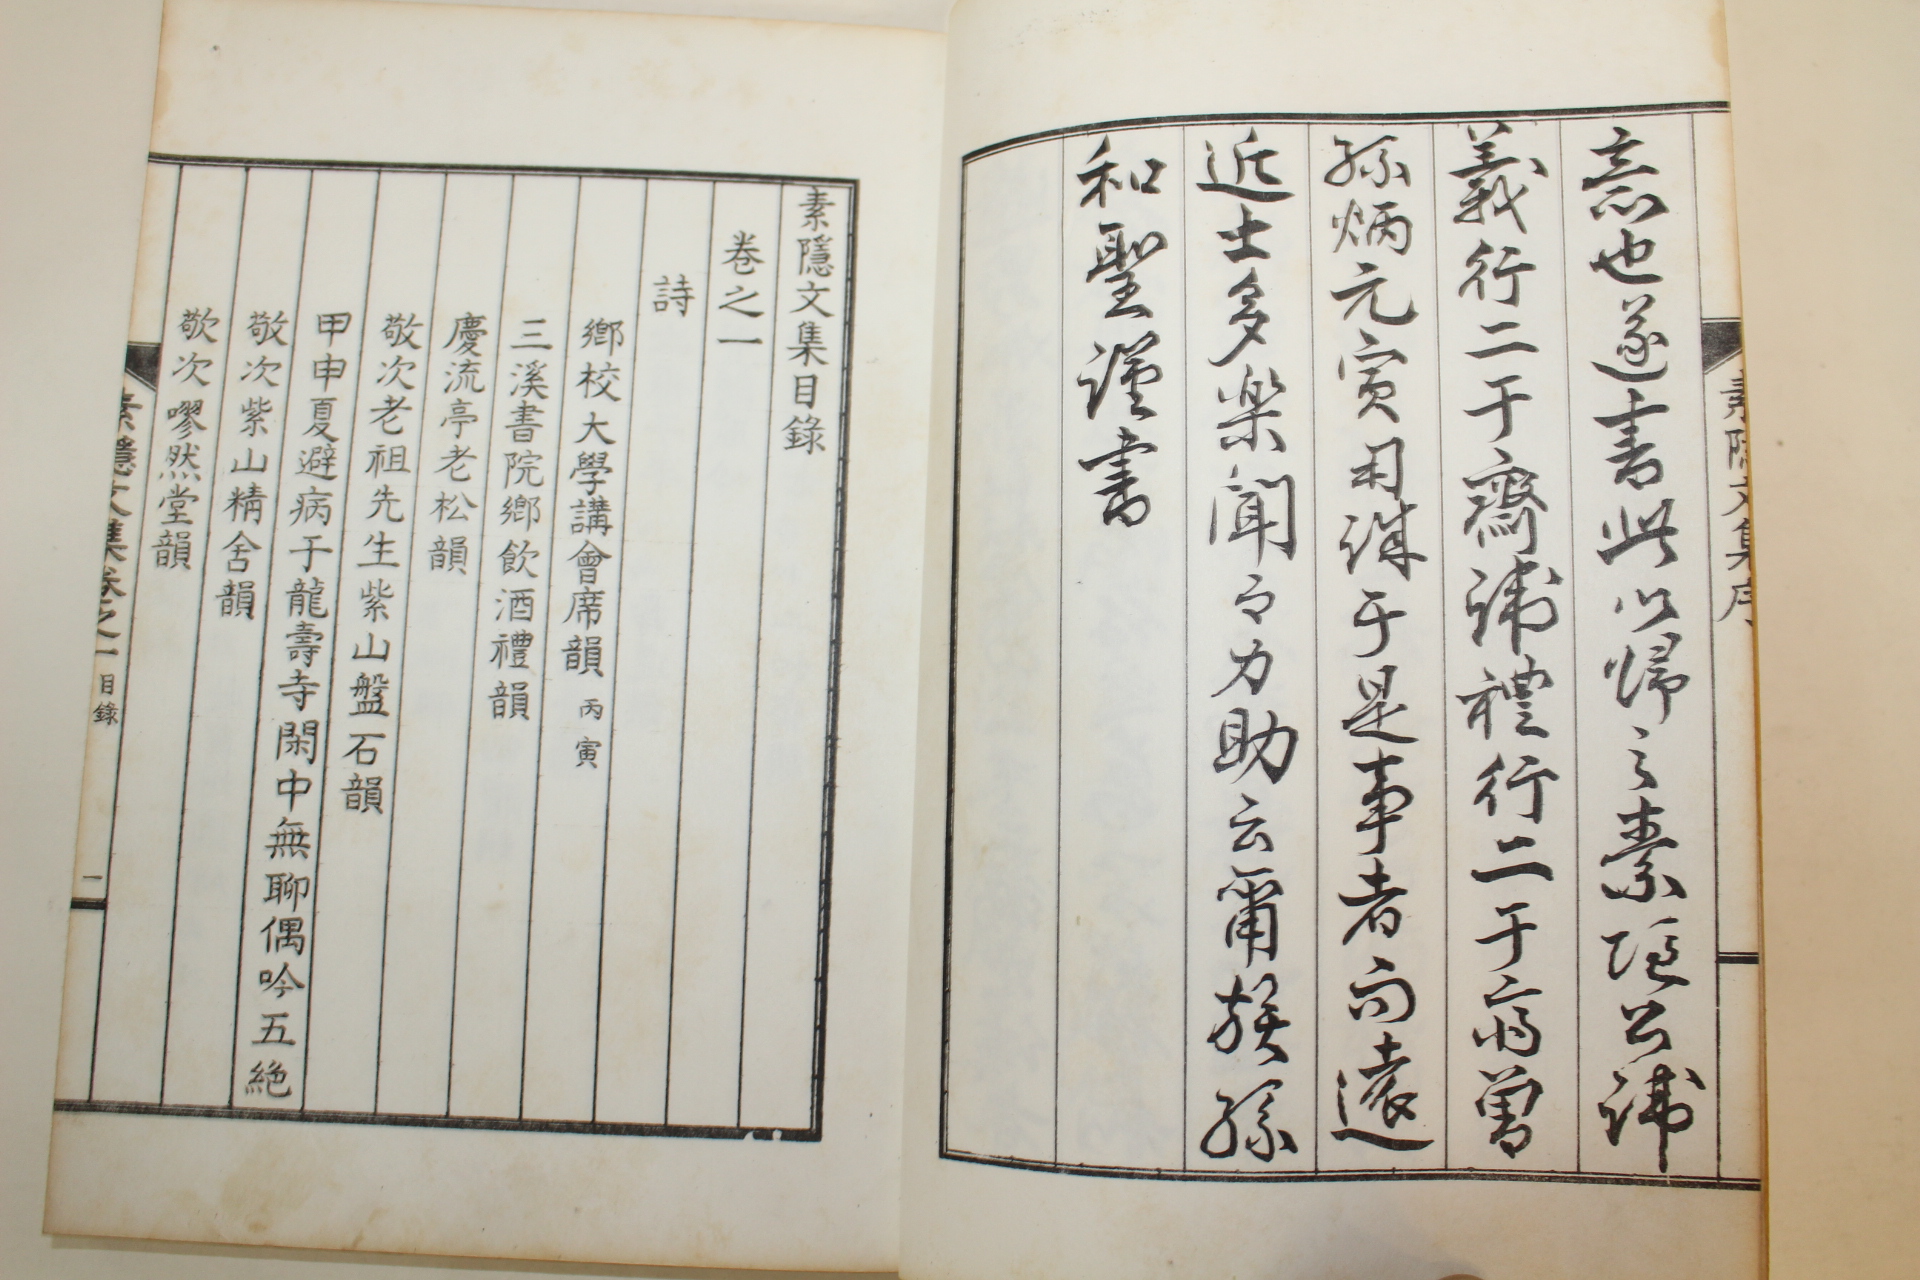 意也遂書此以歸之素隱公諱
義行二于齋諱禮行二于齋曾
孫炳元寅用洙于是事者而遠
近士多樂聞而力助云爾族孫
和聖謹書
素隱文集序
素隱文集目錄
卷之一
詩
鄕校大學講會席韻 丙寅
三溪書院鄕飮酒禮韻
慶流亭老松韻
敬次老祖先生紫山盤石韻
甲申夏避病于龍壽寺閑中無聊偶吟五絶
敬次紫山精舍韻
敬次嘐然堂韻
素隱文集卷之一 目錄 一